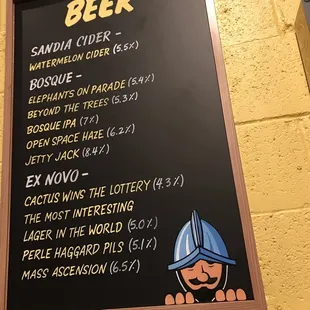 BEER
SANDIA CIDER -
WATERMELON CIDER (5.5%)
BOSQUE -
ELEPHANTS ON PARADE (5.4%)
BEYOND THE TREES (5.3%)
BOSQUE IPA (7%)
OPEN SPACE HAZE (6.2%)
JETTY JACK (8.4%)
EX NOVO -
CACTUS WINS THE LOTTERY (4.3%)
THE MOST INTERESTING
LAGER IN THE WORLD (5.0%)
PERLE HAGGARD PILS (5.1%)
MASS ASCENSION (6.5%)